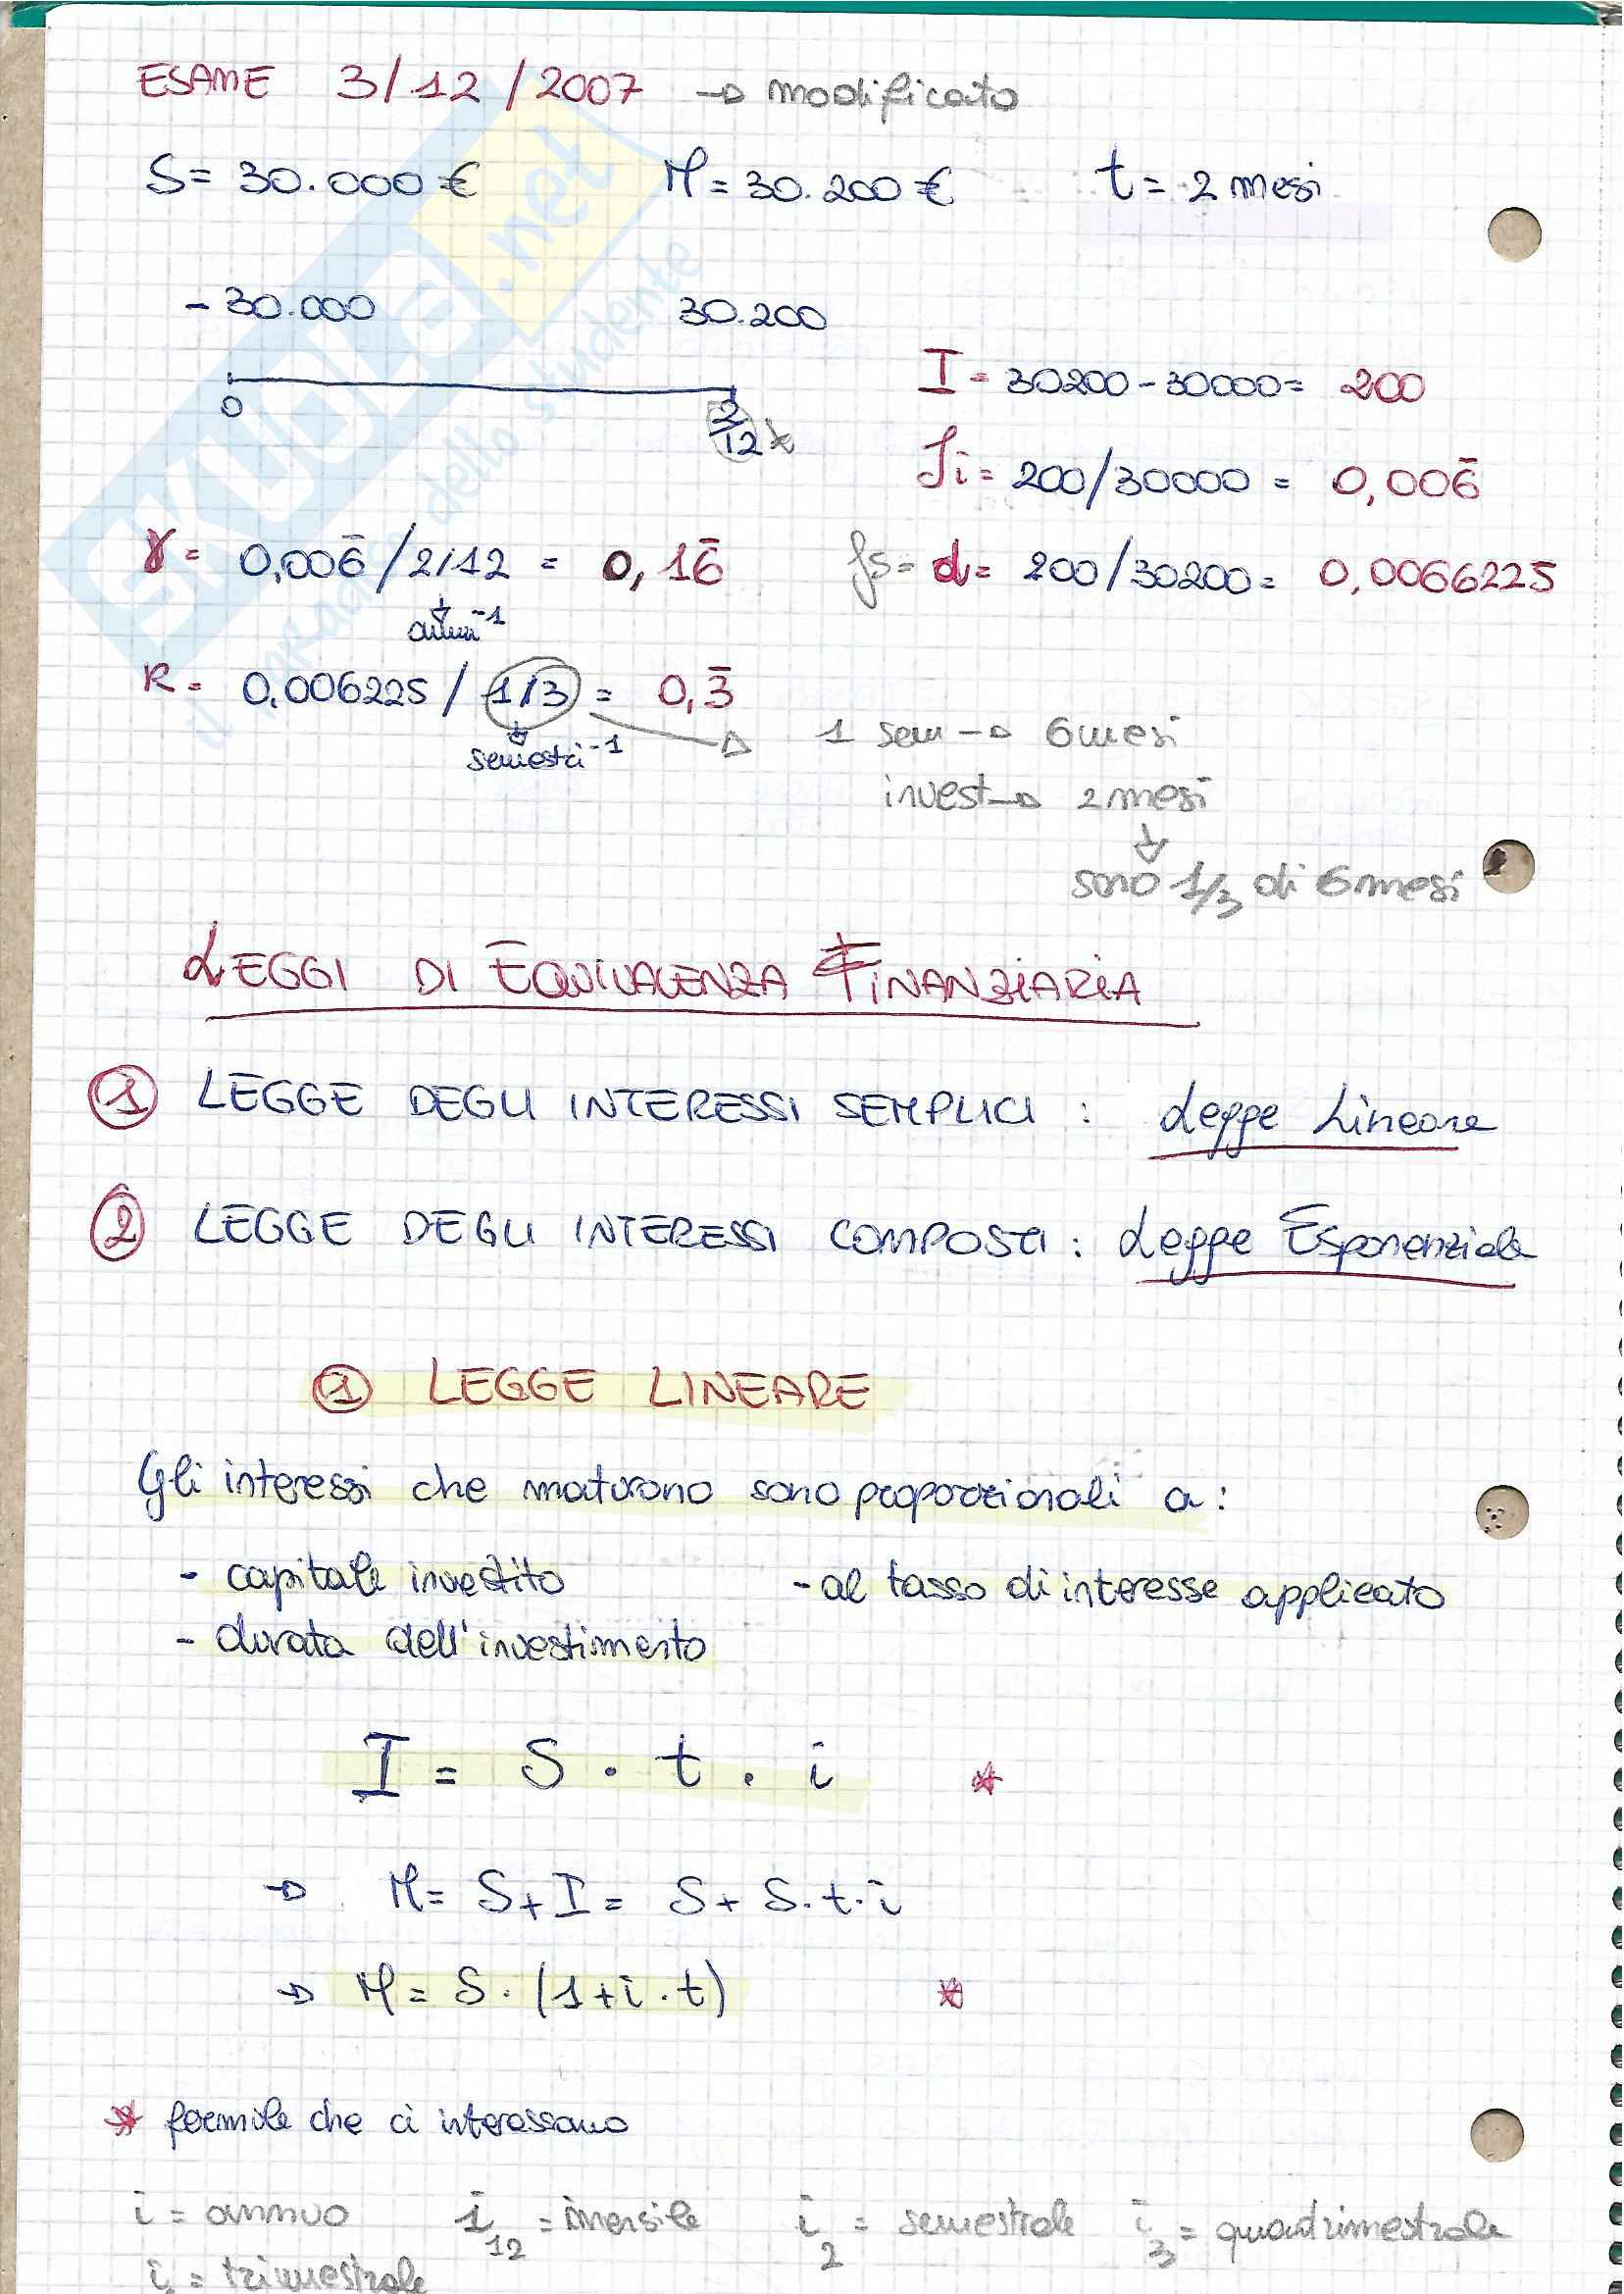 ESAME 3/12/2007 → modificato
S= 30.000 € M= 30.200 € t= 2 mesi
- 30.000 30.200
0 2/12
I= 30200-30000= 200
fi= 200/30000 = 0,006̄
γ= 0,006̄/2/12 = 0,16̄ fs= d= 200/30200= 0,0066225
anni⁻¹
R= 0,006225/1/3 = 0,3̄
semestri⁻¹ 1 sem → 6 mesi
invest → 2 mesi
sono 1/3 di 6 mesi
LEGGI DI EQUIVALENZA FINANZIARIA
① LEGGE DEGLI INTERESSI SEMPLICI : Legge Lineare
② LEGGE DEGLI INTERESSI COMPOSTI : Legge Esponenziale
① LEGGE LINEARE
Gli interessi che maturano sono proporzionali a :
- capitale investito - al tasso di interesse applicato
- durata dell'investimento
I = S . t . i *
→ M= S+I= S+ S.t.i
→ M= S.(1+i.t) *
* formule che ci interessano
i = annuo i₁₂ = mensile i₂ = semestrale i₃ = quadrimestrale
i = trimestrale
SKUOLA.net
il paradiso dello studente